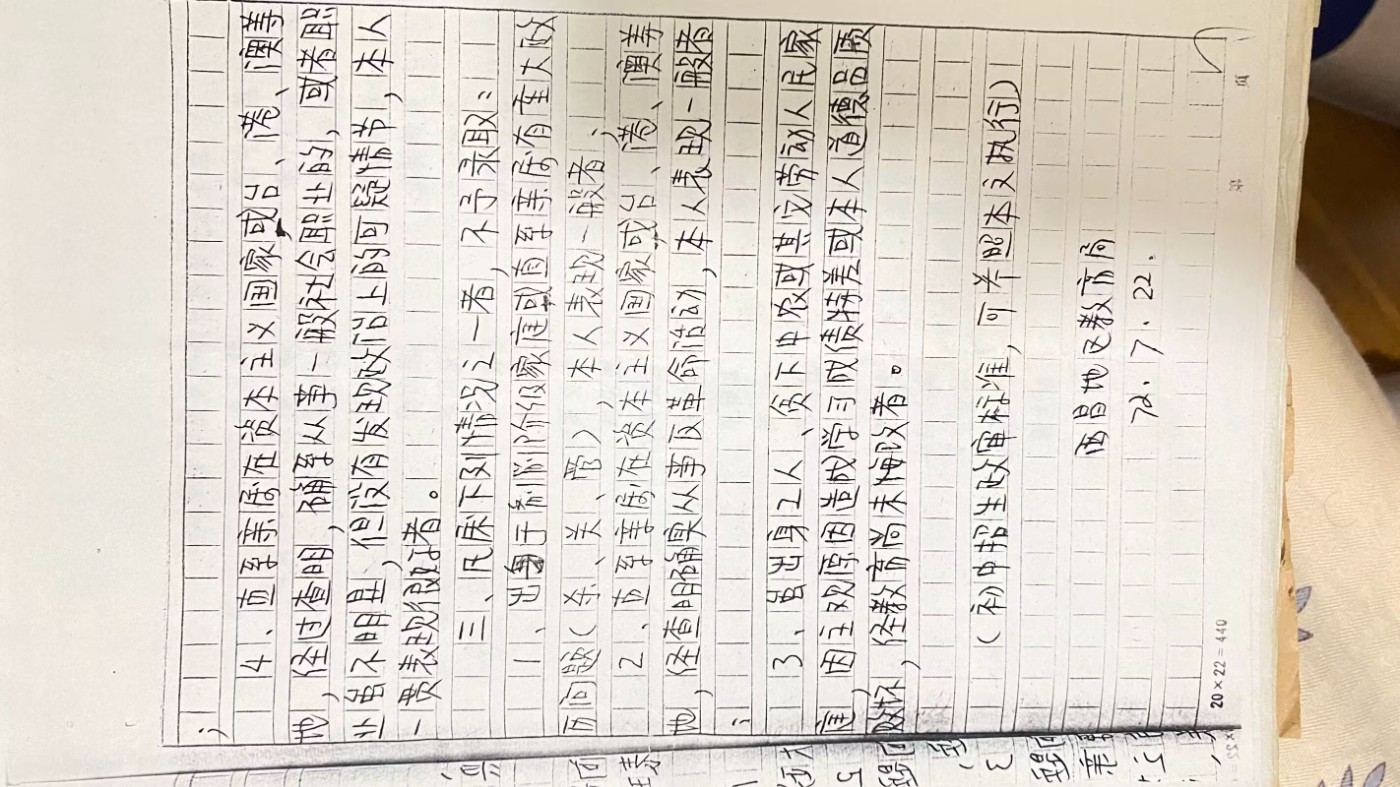 ；
4、直至亲属在资本主义国家或台、港、澳等
地，经过查明，确系从事一般社会职业的，或者职
业岀不明显，但没有发现政治上的可疑情节，本人
一贯表现很好者。
三、凡属下列情况之一者，不予录取：
1、出身于剥削阶级家庭或直至亲属有重大政
历问题（杀、关、管），本人表现一般者、
2、直至亲属在资本主义国家或台、港、澳等
地，经查明确实从事反革命活动，本人表现一般者
；
3、岀出身工人、贫下中农或其它劳动人民家
庭，因主观原因造成学习成绩特差或本人道德品质
败坏，经教育尚未悔改者。
（初中招生政审标准，可参照本文执行）
西昌地区教育局
72.7.22.
20×22=440
页